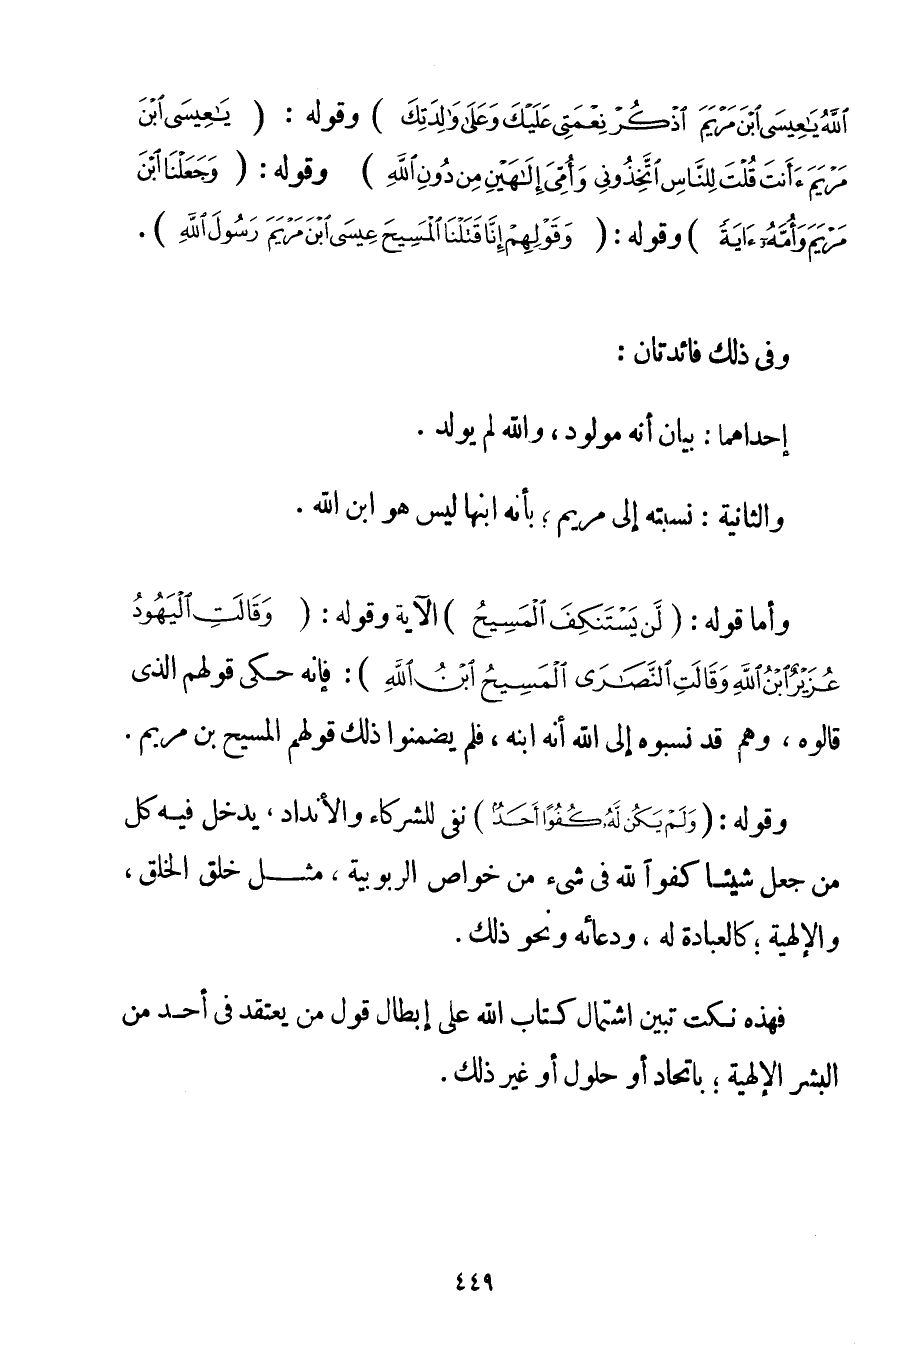 ٱللَّهُ يَـٰعِيسَى ٱبْنَ مَرْيَمَ ٱذْكُرْ نِعْمَتِى عَلَيْكَ وَعَلَىٰ وَٰلِدَتِكَ ) وقوله : ( يَـٰعِيسَى ٱبْنَ
مَرْيَمَ ءَأَنتَ قُلْتَ لِلنَّاسِ ٱتَّخِذُونِى وَأُمِّىَ إِلَـٰهَيْنِ مِن دُونِ ٱللَّهِ ) وقوله : ( وَجَعَلْنَا ٱبْنَ
مَرْيَمَ وَأُمَّهُۥٓ ءَايَةً ) وقوله : ( وَقَوْلِهِمْ إِنَّا قَتَلْنَا ٱلْمَسِيحَ عِيسَى ٱبْنَ مَرْيَمَ رَسُولَ ٱللَّهِ ) .
وفى ذلك فائدتان :
إحداهما : بيان أنه مولود ، والله لم يولد .
والثانية : نسبته إلى مريم ؛ بأنه ابنها ليس هو ابن الله .
وأما قوله : ( لَّن يَسْتَنكِفَ ٱلْمَسِيحُ ) الآية وقوله : ( وَقَالَتِ ٱلْيَهُودُ
عُزَيْرٌ ٱبْنُ ٱللَّهِ وَقَالَتِ ٱلنَّصَـٰرَى ٱلْمَسِيحُ ٱبْنُ ٱللَّهِ ) : فإنه حكى قولهم الذى
قالوه ، وهم قد نسبوه إلى الله أنه ابنه ، فلم يضمنوا ذلك قولهم المسيح بن مريم .
وقوله : ( وَلَمْ يَكُن لَّهُۥ كُفُوًا أَحَدٌۢ ) نفى للشركاء والأنداد ، يدخل فيه كل
من جعل شيئا كفوآ لله فى شىء من خواص الربوبية ، مثل خلق الخلق ،
والإلهية ؛ كالعبادة له ، ودعائه ونحو ذلك .
فهذه نكت تبين اشتمال كتاب الله على إبطال قول من يعتقد فى أحد من
البشر الإلهية ؛ باتحاد أو حلول أو غير ذلك .
٤٤٩